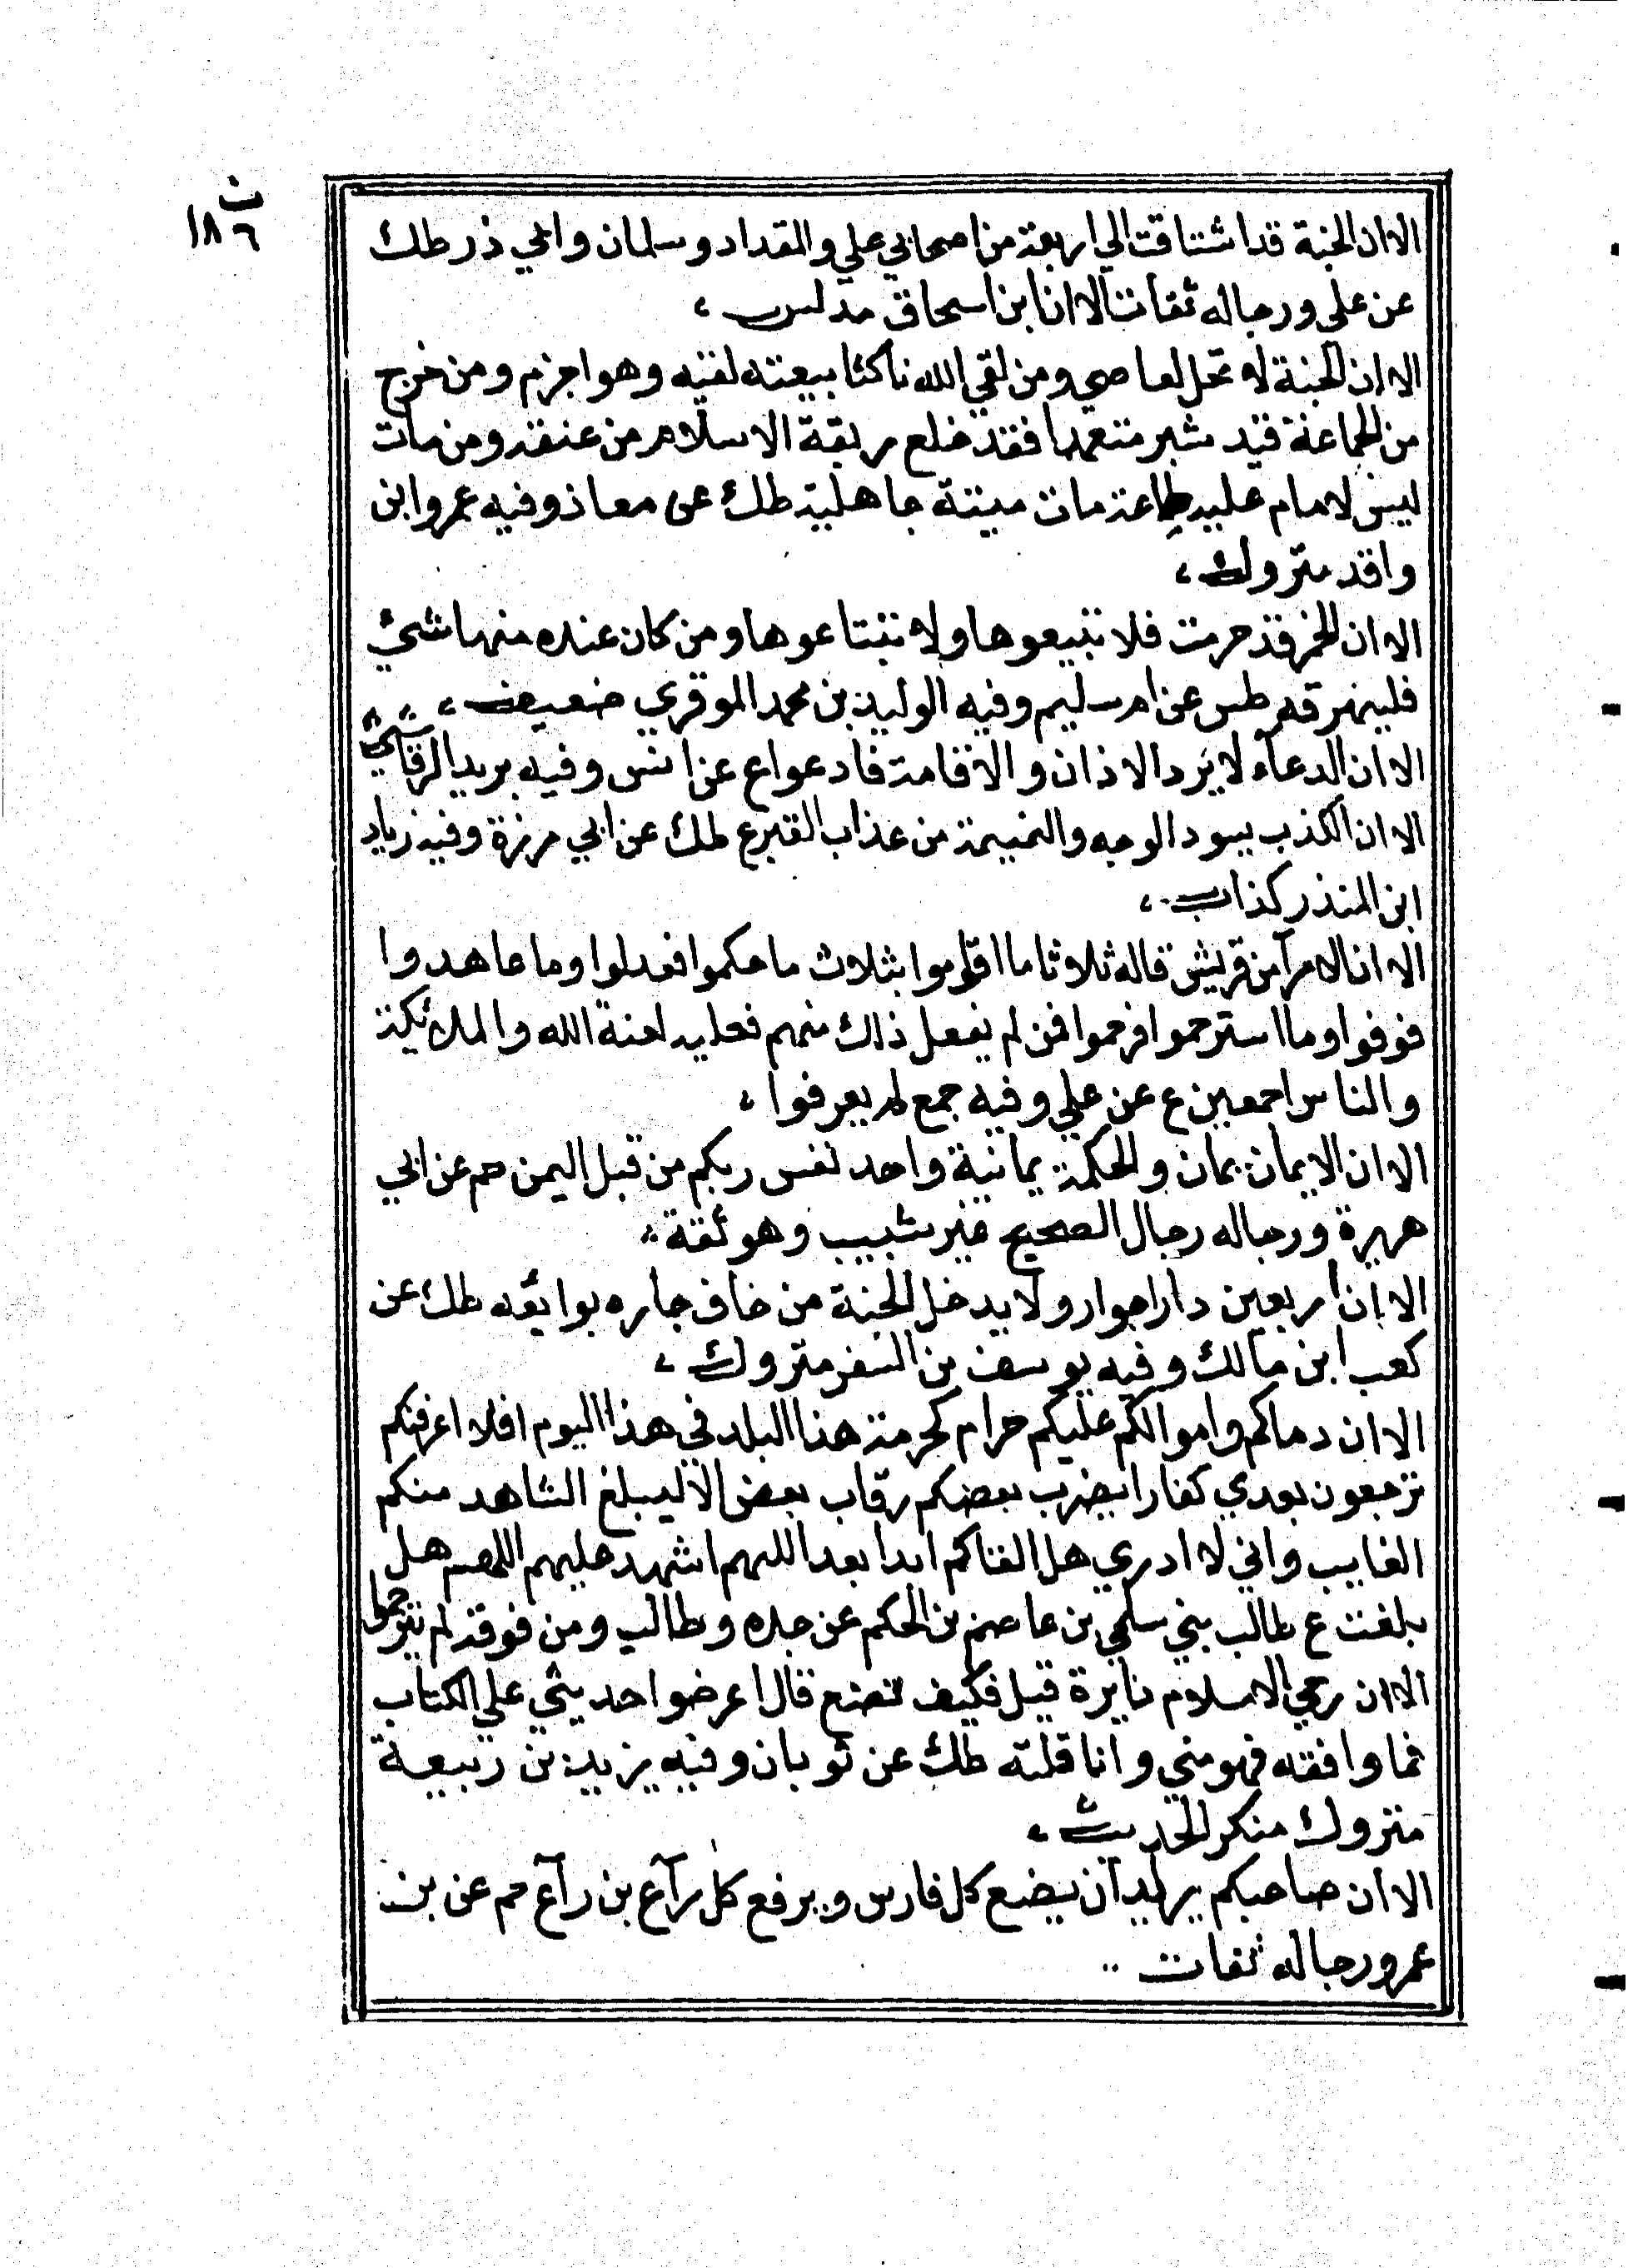 ث
١٨٦
الا ان الجنة قد اشتاقت الي اربعة من اصحابي علي والمقداد وسلمان وابي ذر طك
عن علي ورجاله ثقات الا ان ابن اسحاق مدلس
الا ان الجنة لا تحل لعاصي ومن لقي الله ناكثا بيعته لقيه وهو اجزم ومن خرج
من الجماعة قيد شبر متعمدا فقد خلع ربقة الاسلام من عنقه ومن مات
ليس لامام عليه طاعة مات ميتة جاهلية طك عن معاذ وفيه عمرو ابن
واقد متروك
الا ان الخمر قد حرمت فلا تبيعوها ولا تبتاعوها ومن كان عنده منها شيء
فليهرقه طس عن ام سليم وفيه الوليد بن محمد الموقري ضعيف
الا ان الدعاء لا يرد الاذان والاقامة فادعوا ع عن انس وفيه يريد الرقاشي
الا ان الكذب يسود الوجه والنميمة من عذاب القبر ع طك عن ابي برزة وفيه زياد
ابن المنذر كذاب
الا ان الامرآ من قريش قاله ثلاثا ما اقاموا بثلاث ما حكموا فعدلوا وما عاهدوا
فوفوا وما استرحموا فرحموا فمن لم يفعل ذلك منهم فعليه لعنة الله والملائكة
والناس اجمعين ع عن علي وفيه جمع لم يعرفوا
الا ان الايمان يمان والحكمة يمانية واحد نفس ربكم من قبل اليمن حم عن ابي
هريرة ورجاله رجال الصحيح غير شبيب وهو ثقة
الا ان اربعين دارا جوار ولا يدخل الجنة من خاف جاره بوائقه طك عن
كعب ابن مالك وفيه يوسف بن السفر متروك
الا ان دماكم واموالكم عليكم حرام كحرمة هذا البلد في هذا اليوم افلا اعرفنكم
ترجعون بعدي كفارا يضرب بعضكم رقاب بعض الا ليبلغ الشاهد منكم
الغايب واني لا ادري هل القاكم ابدا بعد اللهم اشهد عليهم اللهم هل
بلغت ع طالب بني سلمي بن عاصم بن الحكم عن جده وطالب ومن فوقه لم يترجموا
الا ان رحي الاسلام دايرة قيل فكيف نصنع قال اعرضوا حديثي علي الكتاب
فما وافقه فهو مني وانا قلته طك عن ثوبان وفيه يزيد بن ربيعة
متروك منكر الحديث
الا ان صاحبكم يريد ان يضع كل فارس ويرفع كل رآع بن رآع حم عن بن
عمرو رجاله ثقات